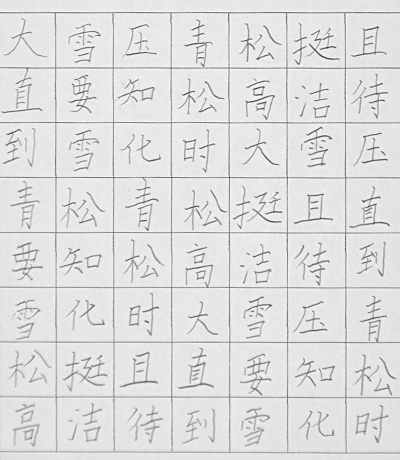 大雪压青松挺且
直要知松高洁待
到雪化时大雪压
青松青松挺且直
要知松高洁待到
雪化时大雪压青
松挺且直要知松
高洁待到雪化时